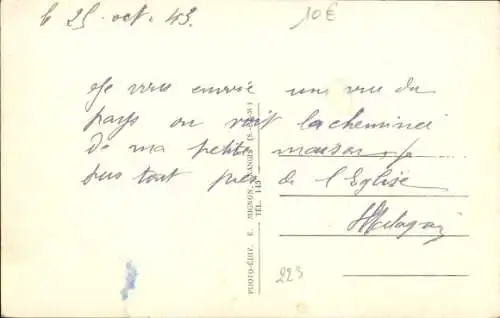 le 25. oct. 43.
10€
Je vous envoie une vue du
pays on voit la cheminée
de ma petite maison, je
suis tout près de l'Eglise
PHOTO-ÉDIT. E. MIGNON, NANGIS (S.-&-M.)
TÉL. 145
223